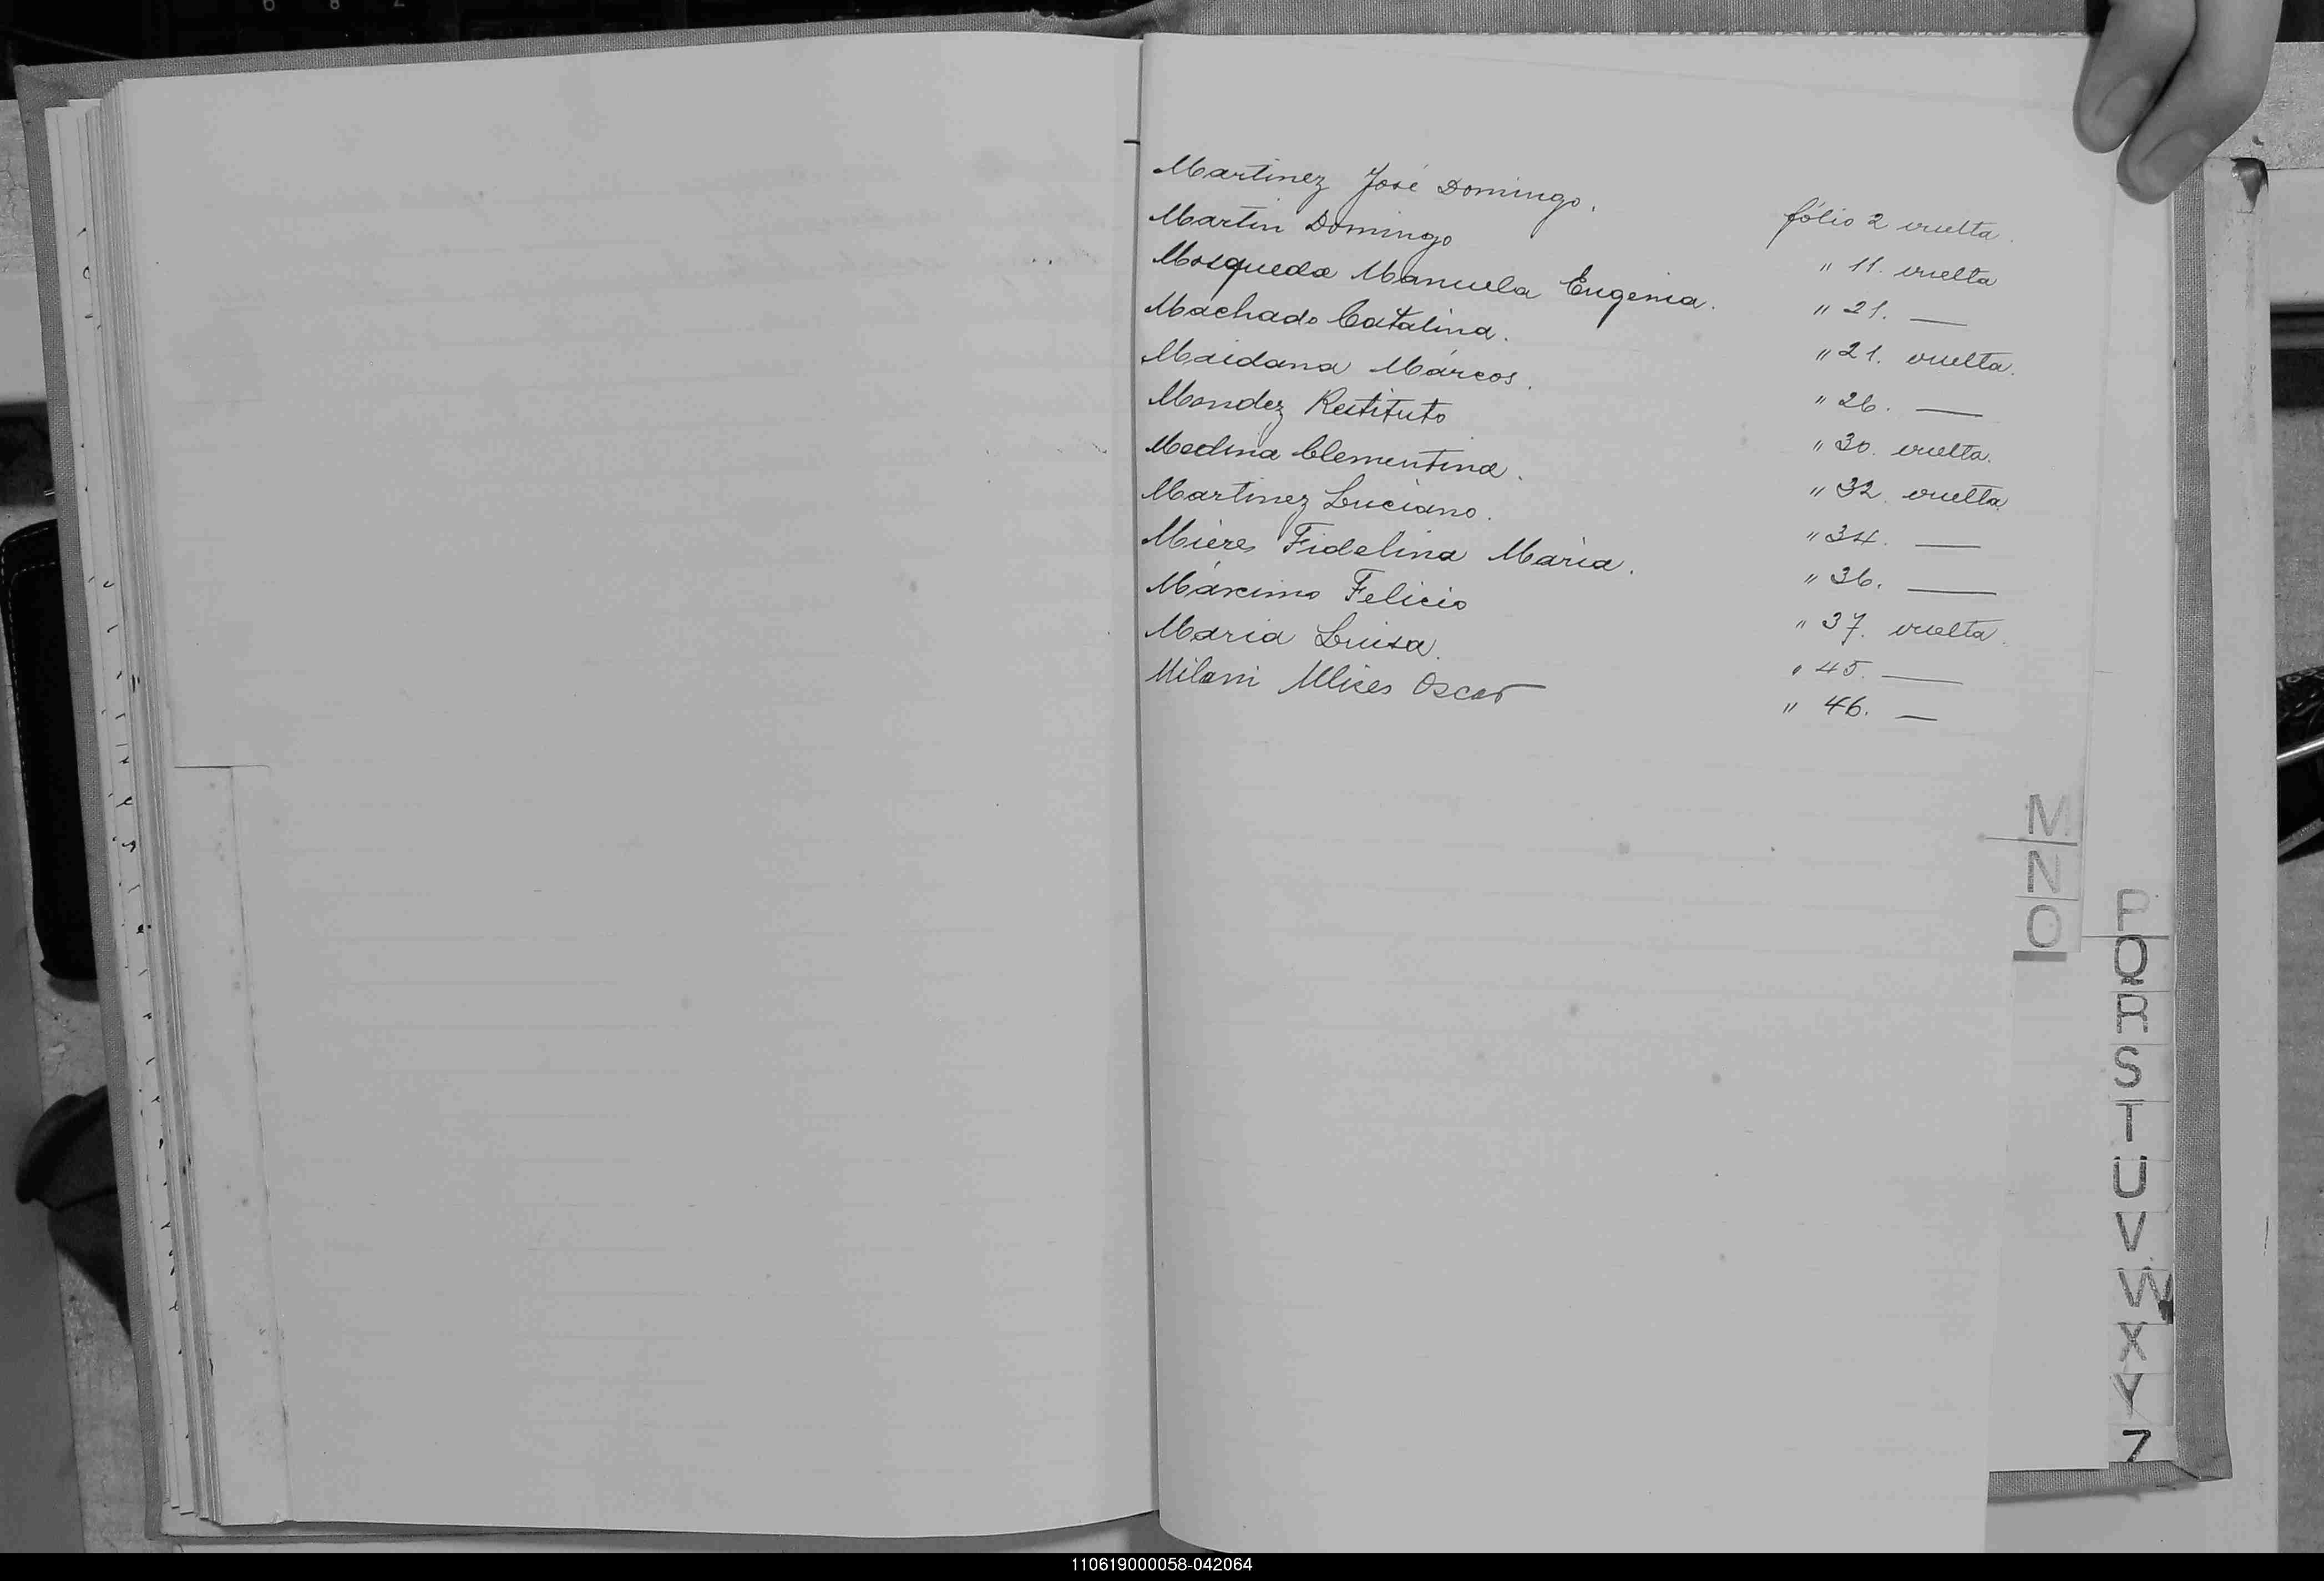 Martinez José Domingo. fólio 2 vuelta.
Martin Domingo " 11. vuelta
Mosqueda Manuela Eugenia. " 21. —
Machado Catalina. " 21. vuelta.
Maidana Márcos. " 26. —
Mendez Restituto " 30. vuelta.
Medina Clementina. " 32. vuelta
Martinez Luciano. " 34. —
Mieres Fidelina Maria. " 36. —
Máximo Felicio " 37. vuelta.
Maria Luisa. " 45. —
Milani Ulises Oscar " 46. —
M
N
O
P
Q
R
S
T
U
V
W
X
Y
Z
110619000058-042064